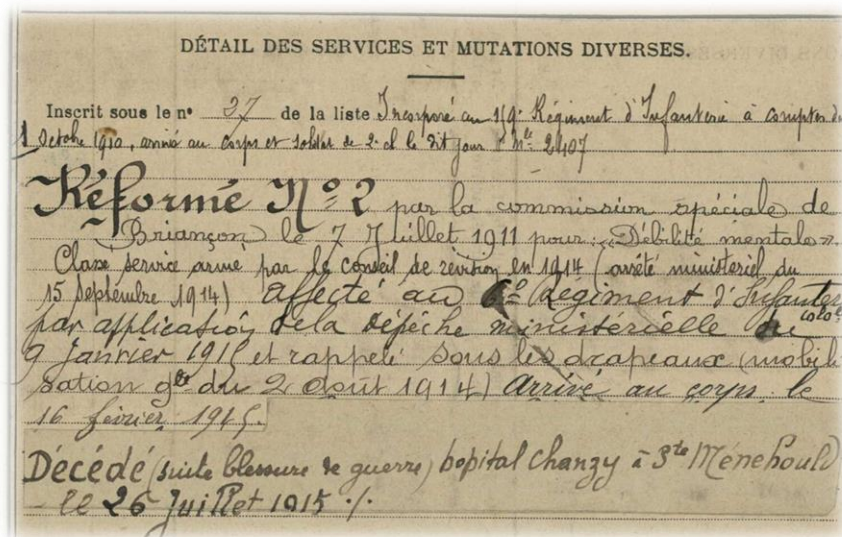 DÉTAIL DES SERVICES ET MUTATIONS DIVERSES.
Inscrit sous le nº 37 de la liste Incorporé au 159e Régiment d'Infanterie à compter du
1 Octobre 1910, arrivé au corps et soldat de 2e cl le dit jour Nle 2407
Réformé Nº 2 par la commission spéciale de
Briançon le 7 Juillet 1911 pour : "Débilité mentale"
Classé service armé par le conseil de révision en 1914 (arrêté ministériel du
15 Septembre 1914) affecté au 6e Régiment d'Infanterie
colole
par application de la dépêche ministérielle du
9 Janvier 1915 et rappelé sous les drapeaux (mobili
sation gle du 2 août 1914) Arrivé au corps le
16 février 1915.
Décédé (suite blessure de guerre) hopital Chanzy à Ste Ménehould
le 26 Juillet 1915 ./.